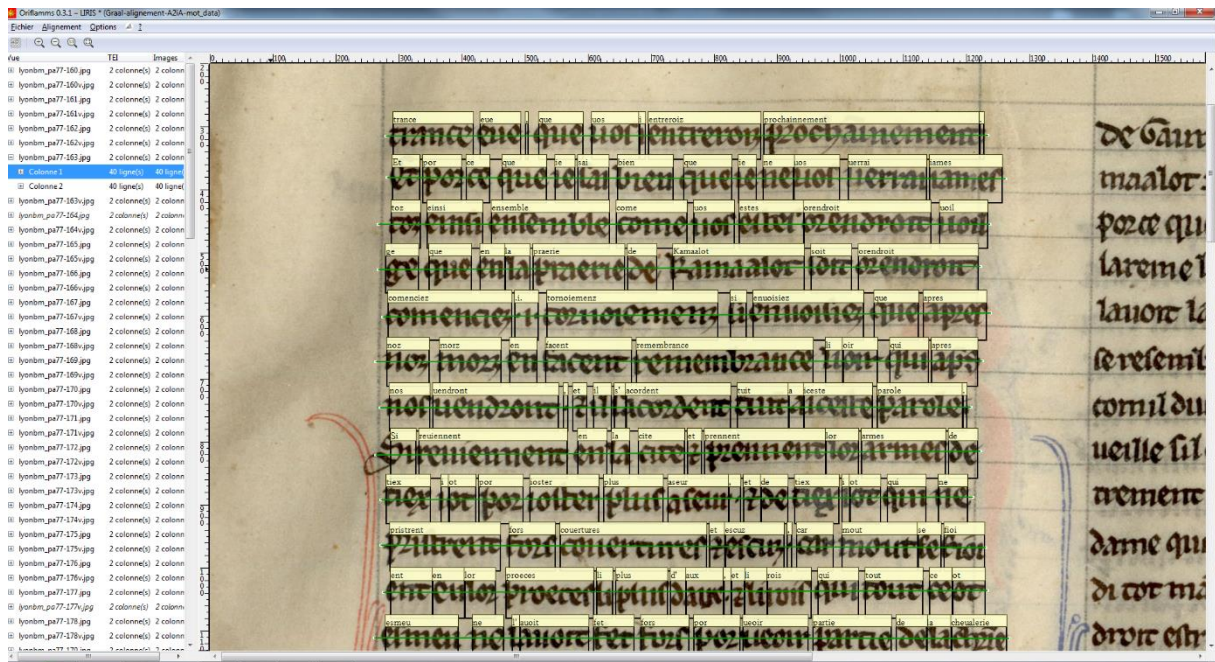 Oriflamms 0.3.1 - LIRIS * (Graal-alignement-A2iA-mot_data)
Fichier Alignement Options ?
Vue TEI Images
lyonbm_pa77-160.jpg 2 colonne(s) 2 colonn
lyonbm_pa77-160v.jpg 2 colonne(s) 2 colonn
lyonbm_pa77-161.jpg 2 colonne(s) 2 colonn
lyonbm_pa77-161v.jpg 2 colonne(s) 2 colonn
lyonbm_pa77-162.jpg 2 colonne(s) 2 colonn
lyonbm_pa77-162v.jpg 2 colonne(s) 2 colonn
lyonbm_pa77-163.jpg 2 colonne(s) 2 colonn
Colonne 1 40 ligne(s) 40 ligne(
Colonne 2 40 ligne(s) 40 ligne(
lyonbm_pa77-163v.jpg 2 colonne(s) 2 colonn
lyonbm_pa77-164.jpg 2 colonne(s) 2 colonn
lyonbm_pa77-164v.jpg 2 colonne(s) 2 colonn
lyonbm_pa77-165.jpg 2 colonne(s) 2 colonn
lyonbm_pa77-165v.jpg 2 colonne(s) 2 colonn
lyonbm_pa77-166.jpg 2 colonne(s) 2 colonn
lyonbm_pa77-166v.jpg 2 colonne(s) 2 colonn
lyonbm_pa77-167.jpg 2 colonne(s) 2 colonn
lyonbm_pa77-167v.jpg 2 colonne(s) 2 colonn
lyonbm_pa77-168.jpg 2 colonne(s) 2 colonn
lyonbm_pa77-168v.jpg 2 colonne(s) 2 colonn
lyonbm_pa77-169.jpg 2 colonne(s) 2 colonn
lyonbm_pa77-169v.jpg 2 colonne(s) 2 colonn
lyonbm_pa77-170.jpg 2 colonne(s) 2 colonn
lyonbm_pa77-170v.jpg 2 colonne(s) 2 colonn
lyonbm_pa77-171.jpg 2 colonne(s) 2 colonn
lyonbm_pa77-171v.jpg 2 colonne(s) 2 colonn
lyonbm_pa77-172.jpg 2 colonne(s) 2 colonn
lyonbm_pa77-172v.jpg 2 colonne(s) 2 colonn
lyonbm_pa77-173.jpg 2 colonne(s) 2 colonn
lyonbm_pa77-173v.jpg 2 colonne(s) 2 colonn
lyonbm_pa77-174.jpg 2 colonne(s) 2 colonn
lyonbm_pa77-174v.jpg 2 colonne(s) 2 colonn
lyonbm_pa77-175.jpg 2 colonne(s) 2 colonn
lyonbm_pa77-175v.jpg 2 colonne(s) 2 colonn
lyonbm_pa77-176.jpg 2 colonne(s) 2 colonn
lyonbm_pa77-176v.jpg 2 colonne(s) 2 colonn
lyonbm_pa77-177.jpg 2 colonne(s) 2 colonn
lyonbm_pa77-177v.jpg 2 colonne(s) 2 colonn
lyonbm_pa77-178.jpg 2 colonne(s) 2 colonn
lyonbm_pa77-178v.jpg 2 colonne(s) 2 colonn
0 100 200 300 400 500 600 700 800 900 1000 1100 1200 1300 1400 1500
trance eue que uos entreroiz prochainnement
Et por ce que ie sai bien que ie ne uos uerrai iames
toz einsi ensemble come uos estes orendroit uoil
ge que en la praerie de Kamaalot soit orendroit
comenciez .i. tornoiemenz si enuoisiez que apres
noz morz en facent remembrance li oir qui apres
nos uendront . et il s' acordent tuit a ceste parole .
Si reuiennent en la cite et prennent lor armes de
tiex i ot por ioster plus aseur , et de tiex i ot qui ne
pristrent fors couertures et escuz , car mout se fioi
ent en lor proeces li plus d' aux . et li rois qui tout ce ot
esmeu ne l' auoit fet fors por ueoir partie de la cheualerie
de Gaur
maalot:
porce qu
lareine l
lauoit la
se resembl
com il du
ueille sil
trement
dame qu
di tot ma
droit estr